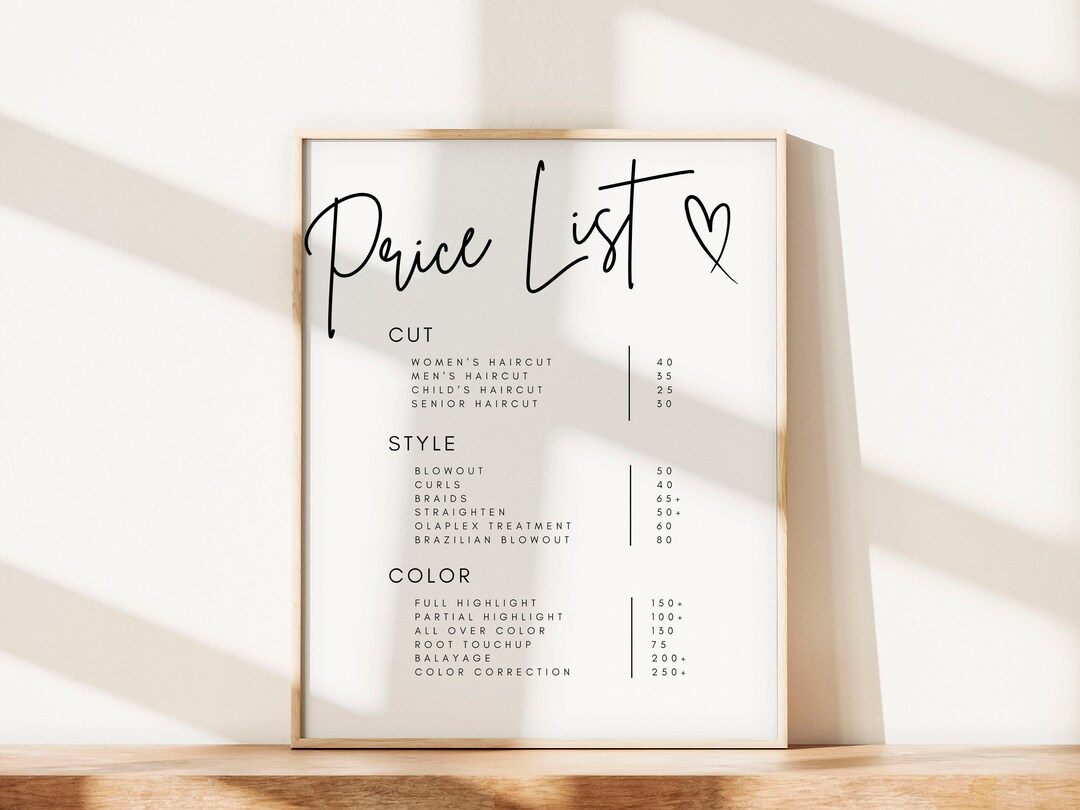 Price List
CUT
WOMEN'S HAIRCUT 40
MEN'S HAIRCUT 35
CHILD'S HAIRCUT 25
SENIOR HAIRCUT 30
STYLE
BLOWOUT 50
CURLS 40
BRAIDS 65+
STRAIGHTEN 50+
OLAPLEX TREATMENT 60
BRAZILIAN BLOWOUT 80
COLOR
FULL HIGHLIGHT 150+
PARTIAL HIGHLIGHT 100+
ALL OVER COLOR 130
ROOT TOUCHUP 75
BALAYAGE 200+
COLOR CORRECTION 250+